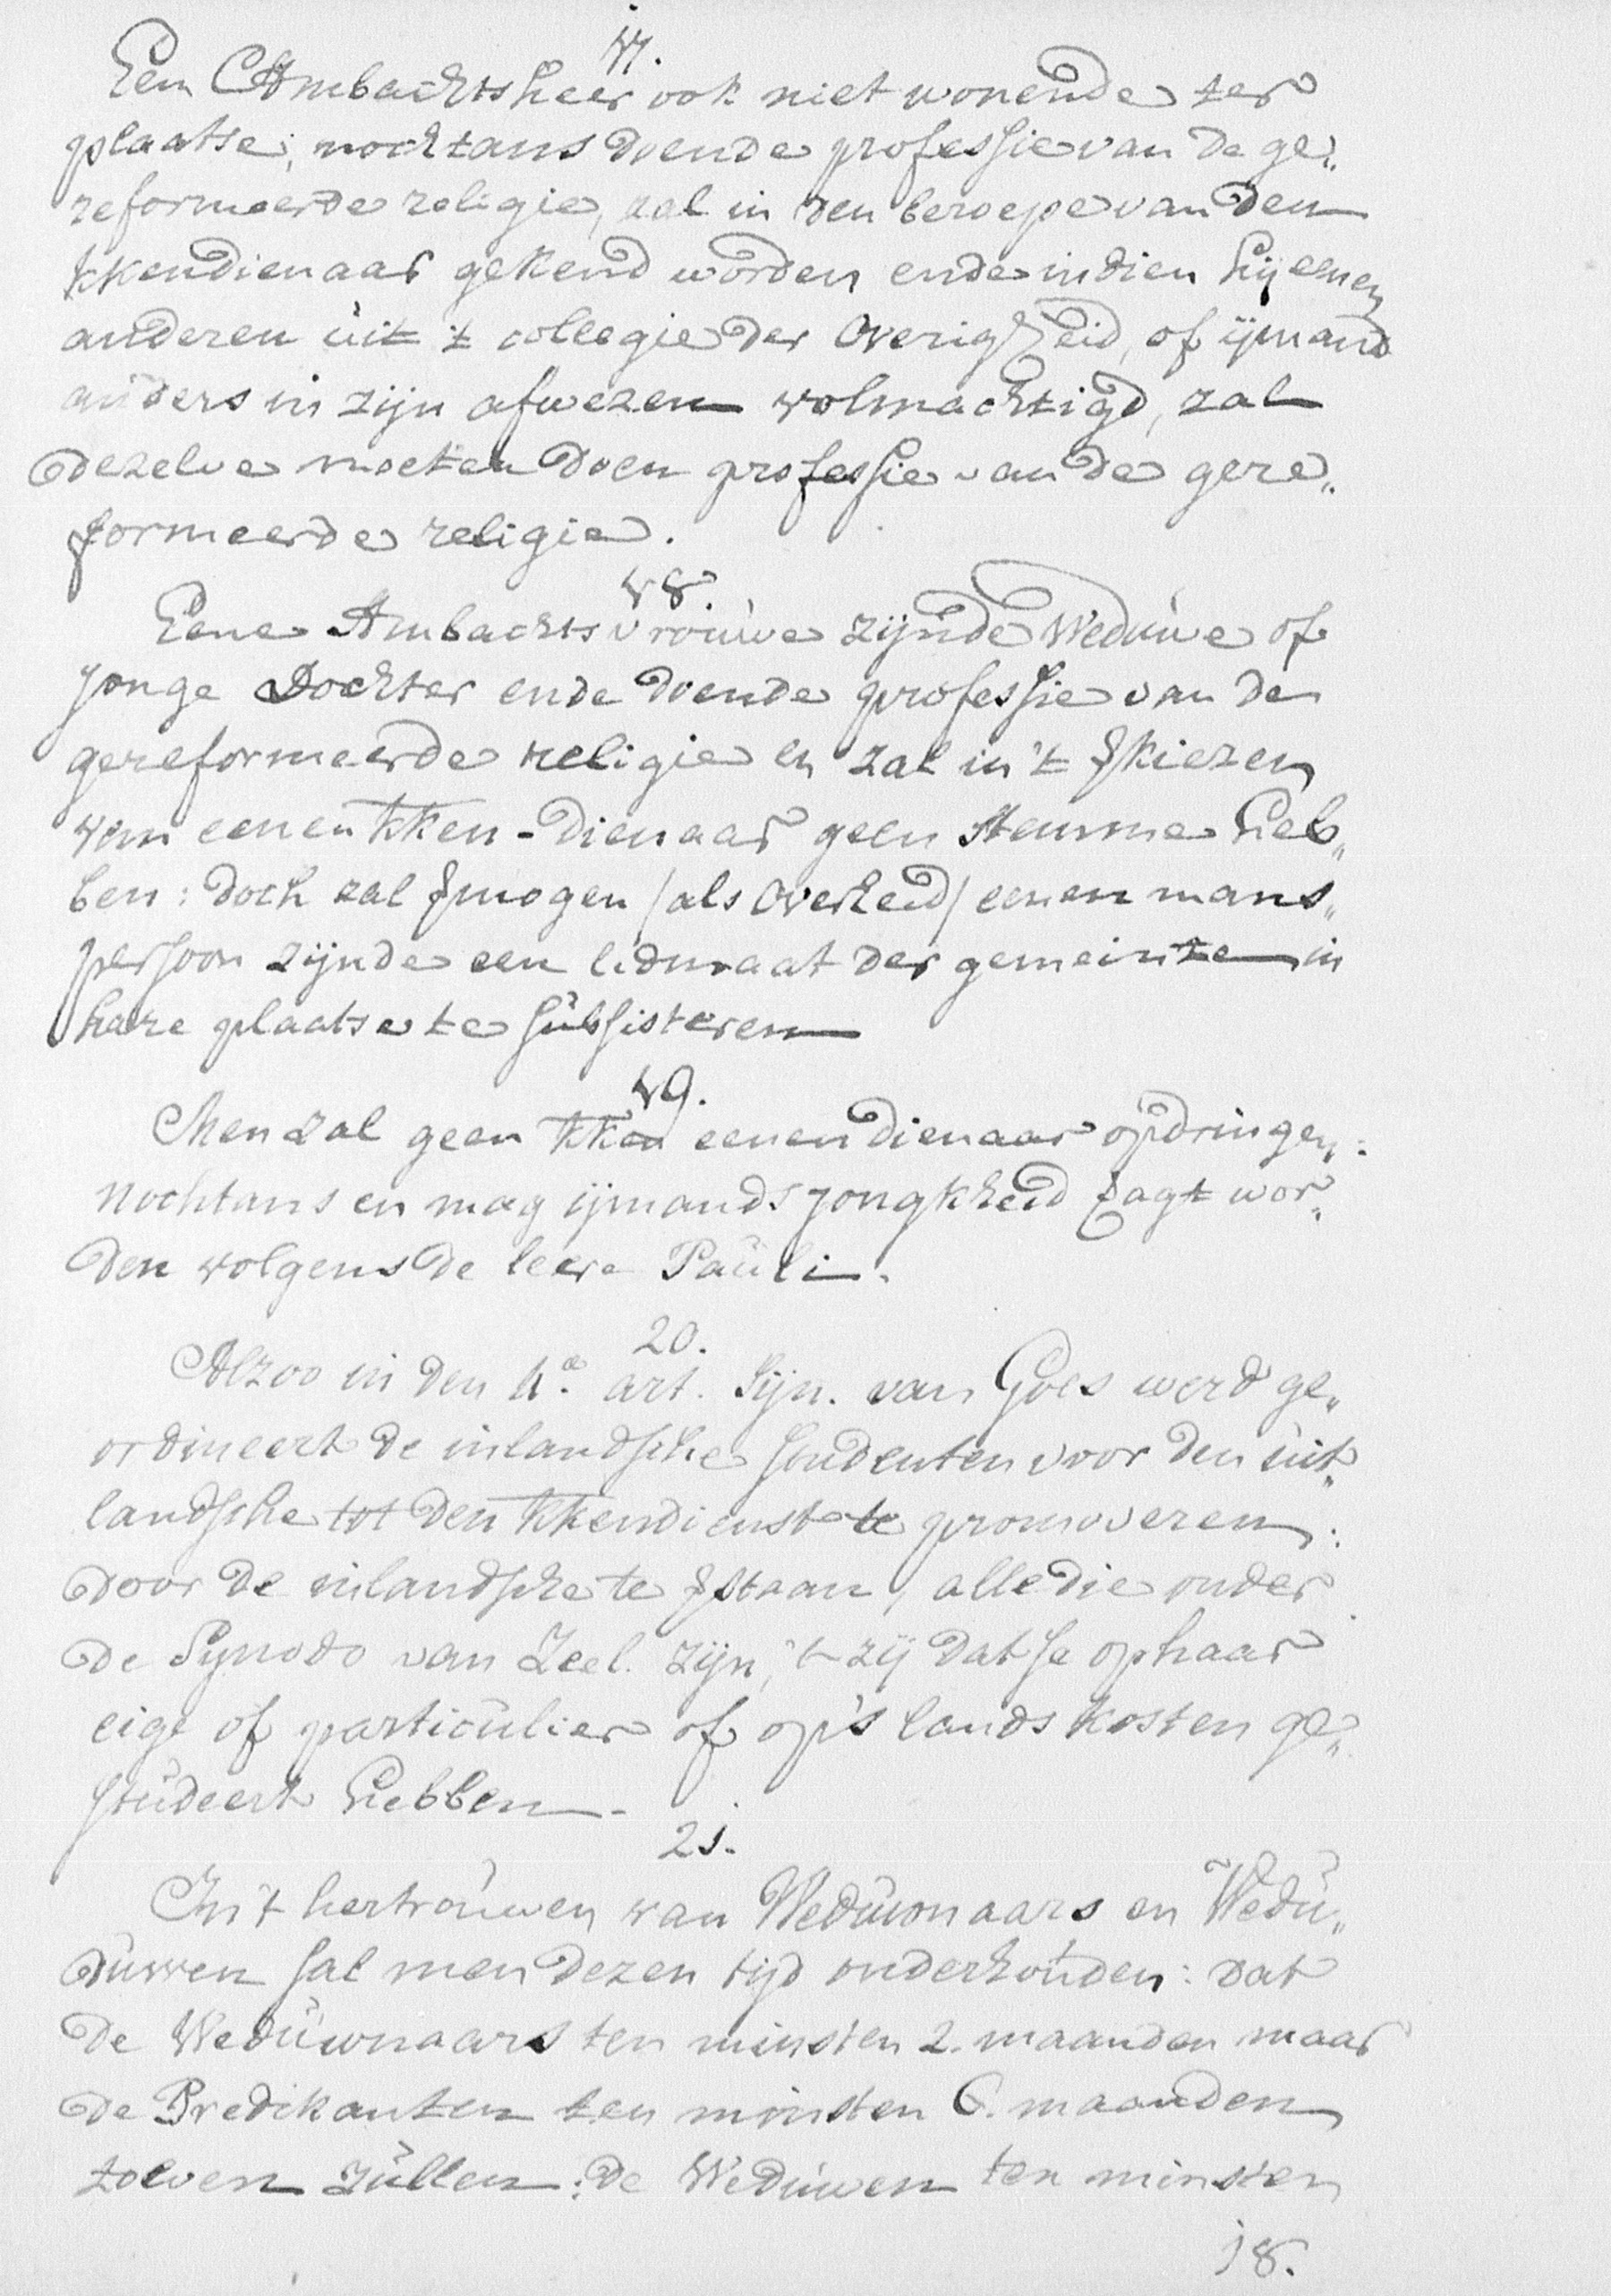 17.
Een Ambachtsheer ook niet wonende ter
plaatse, nochtans doende professie van de ge„
reformeerde religie, zal in den beroepe van den
kkendienaar gekend worden ende indien hij eenen
anderen uit 't collegie der Overigheid, of ijmand
anders in zijn afwezen volmachtigd, zal
dezelve moeten doen professie van de gere„
formeerde religie.
18.
Eene Ambachtsvrouwe zijnde Weduwe of
jonge Dochter ende doende professie van de
gereformeerde religie en zal in 't kiezen
van eenen kken-dienaar geen stemme heb„
ben: doch zal mogen /als Overheid/ eenen mans„
persoon zijnde een lidmaat der gemeinte in
hare plaatse te subsisteren
19.
Men zal geen kken eenen dienaar opdringen:
nochtans en mag ijmands jongkheid wor„
den volgens de leere Pauli.
20.
Alzoo in den art. Sijn. van Goes werd ge„
ordineert de inlandsche studenten voor den uit„
landsche tot den kkendienst te promoveren:
door de inlandsche te staan, alle die onder
de Synodo van Zeel. zijn, 't zij dat se op haar
eige of particulier of op 's lands kosten ge„
studeert hebben.
21.
In 't hertrouwen van Weduwnaars en Wedu„
duwen sal men dezen tijd onderhouden: dat
de Weduwnaars ten minsten 2. maanden maar
de Predikanten ten minsten 6. maanden
toeven zullen: de Weduwen ten minsten
18.